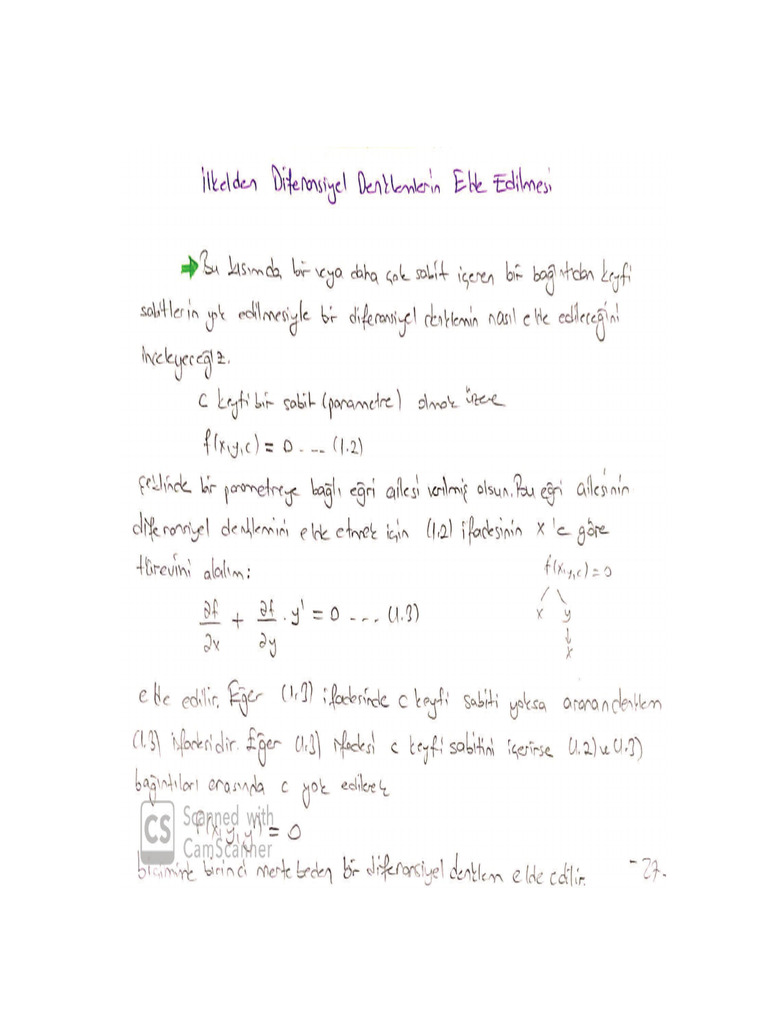 İlkelden Diferansiyel Denklemlerin Elde Edilmesi
Bu kısımda bir veya daha çok sabit içeren bir bağıntıdan keyfi
sabitlerin yok edilmesiyle bir diferansiyel denklemin nasıl elde edileceğini
inceleyeceğiz.
c keyfi bir sabit (parametre) olmak üzere
f(x,y,c) = 0 .... (1.2)
şeklinde bir parametreye bağlı eğri ailesi verilmiş olsun. Bu eğri ailesinin
diferansiyel denklemini elde etmek için (1.2) ifadesinin x'e göre
türevini alalım:
f(x,y,c)=0
∂f/∂x + ∂f/∂y . y' = 0 .... (1.3)
x y
↓
x
elde edilir. Eğer (1.3) ifadesinde c keyfi sabiti yoksa aranan denklem
(1.3) ifadesidir. Eğer (1.3) ifadesi c keyfi sabitini içerirse (1.2) ve (1.3)
bağıntıları arasında c yok edilerek
f(x,y,y') = 0
CS Scanned with
CamScanner
biçiminde birinci mertebeden bir diferansiyel denklem elde edilir.
-27-